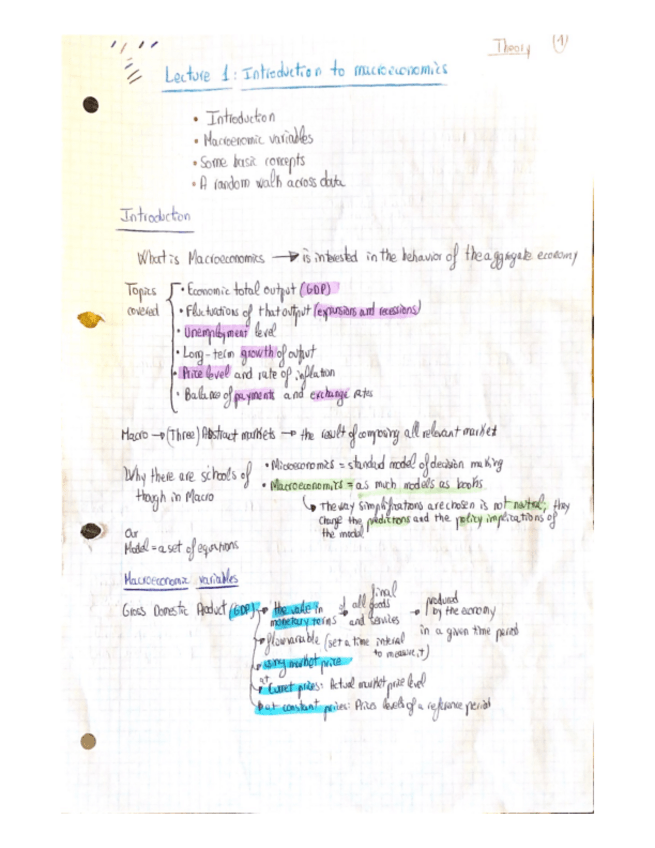 Theory (1)
Lecture 1: Introduction to macroeconomics
• Introduction
• Macroenomic variables
• Some basic concepts
• A random walk across data
Introduction
What is Macroeconomics → is interested in the behavior of the aggregate economy
Topics covered
• Economic total output (GDP)
• Fluctuations of that output (expansions and recessions)
• Unemployment level
• Long-term growth of output
• Price level and rate of inflation
• Balance of payments and exchange rates
Macro → (Three) Abstract markets → the result of composing all relevant market
Why there are schools of though in Macro
• Microeconomics = standard model of decision making
• Macroeconomics = as much models as books.
↳ The way simplifications are chosen is not neutral, they
change the predictions and the policy implications of
the model
Our
Model = a set of equations
Macroeconomic variables
Gross Domestic Product (GDP) → the value in monetary terms of all final goods and services → produced by the economy
in a given time period
→ flow variable (set a time interval
to measure it)
→ using market price
→ at Current prices: Actual market price level
→ at constant prices: Prices levels of a reference period